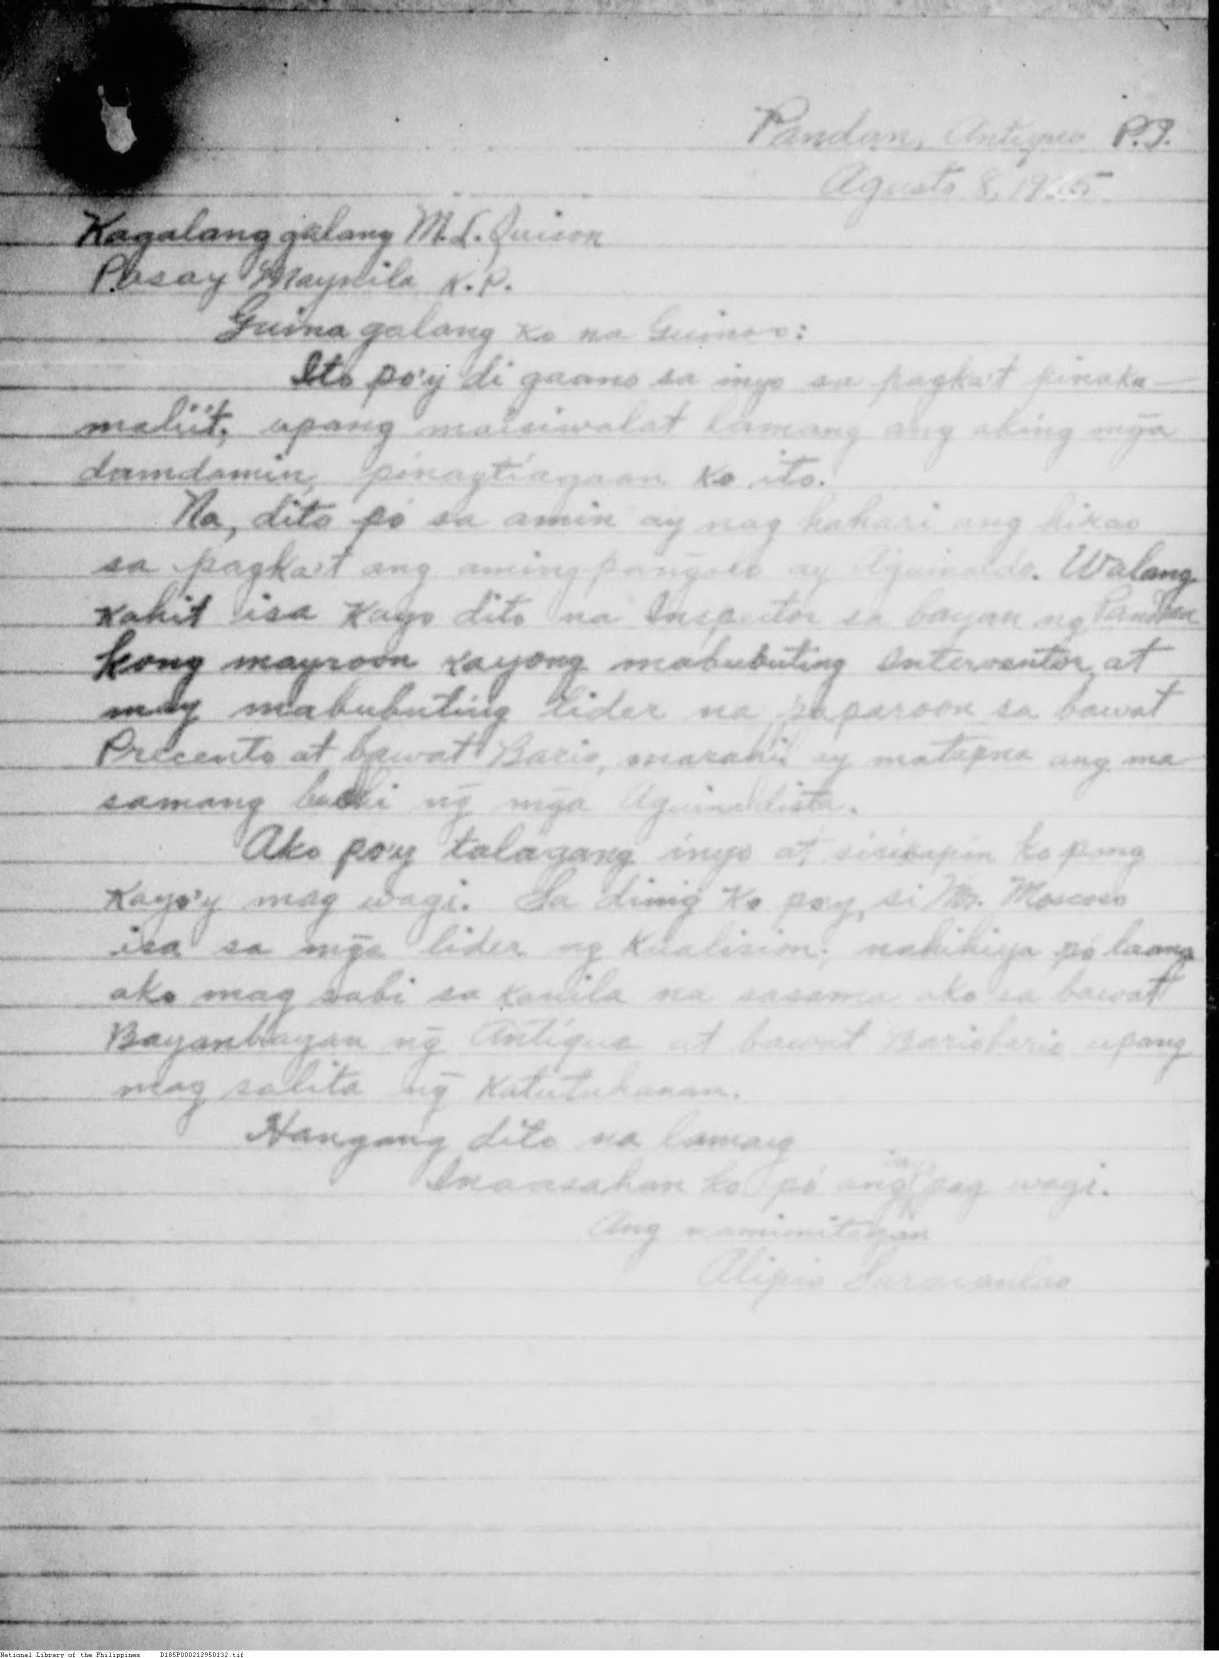 Pandan, Antique P.I.
Agusto 8, 19
Kagalang galang M. L. Quison
Pasay Maynila K.P.
Guina galang ko na Guinoo:
Ito po'y di gaano sa inyo sa pagka't pinaka-
maliit, upang maisiwalat lamang ang aking mg̃a
damdamin, pinagtiagaan ko ito.
Na, dito po sa amin ay nag hahari ang
sa pagka't ang aming ay Aguinaldo. Walang
kahit isa kayo dito na Inspector sa bayan ng Pandan
kong mayroon kayong mabubuting Interventor, at
may mabubuting lider na paparoon sa bawat
Precento at bawat Bario, marahil ay ang ma
samang ng̃ mg̃a Aguinaldista.
Ako po'y talagang inyo at sisikapin ko pong
kayo'y mag wagi. Sa dinig ko po'y, si Mr. Moscoso
isa sa mg̃a lider ng Kualision, nahihiya po laang
ako mag sabi sa kanila na sasama ako sa bawat
Bayanbayan ng̃ Antique at bawat Bariobario upang
mag salita ng̃ katutuhanan.
Hangang dito na lamang
Inaasahan ko po ang pag wagi.
Ang namimitagan
Alipio
National Library of the Philippines D185P000212950132.tif